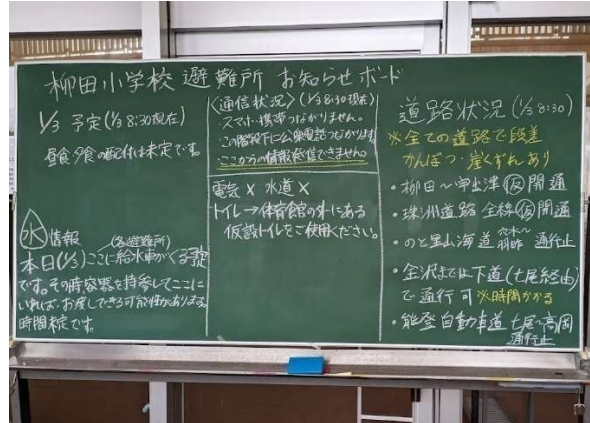 柳田小学校 避難所 お知らせボード
1/3 予定(1/3 8:30現在)
昼食夕食の配付は未定です。
水 情報
(各避難所)
本日(1/3)ここに給水車がくる予定
です。その時容器を持参してここに
いれば、お渡しできる可能性があります。
時間未定です。
〈通信状況〉(1/3 8:30現在)
・スマホ・携帯つながりません。
この階段下に公衆電話つながります
・ここからの情報発信できません。
電気 × 水道 ×
トイレ→体育館の外にある
仮設トイレをご使用ください。
道路状況(1/3 8:30)
※全ての道路で段差
かんぼつ・崖くずれあり
・柳田〜宇出津 仮 開通
・珠洲道路 全線 仮 開通
・のと里山海道 穴水〜羽咋 通行止
・金沢までは下道(七尾経由)
で通行可 ※時間かかる
・能登自動車道 七尾〜高岡
通行止